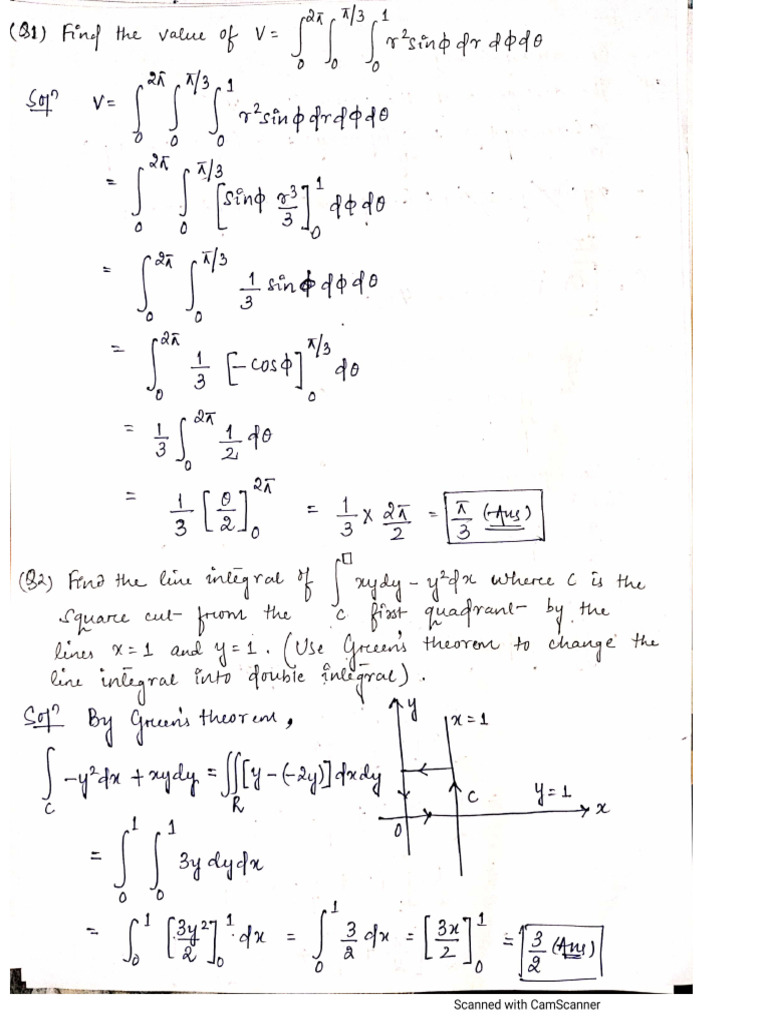 (Q1) Find the value of V = ∫₀^{2π} ∫₀^{π/3} ∫₀^{1} r² sinϕ dr dϕ dθ
Solⁿ V = ∫₀^{2π} ∫₀^{π/3} ∫₀^{1} r² sinϕ dr dϕ dθ
= ∫₀^{2π} ∫₀^{π/3} [sinϕ r³/3]₀^{1} dϕ dθ
= ∫₀^{2π} ∫₀^{π/3} 1/3 sinϕ dϕ dθ
= ∫₀^{2π} 1/3 [-cosϕ]₀^{π/3} dθ
= 1/3 ∫₀^{2π} 1/2 dθ
= 1/3 [θ/2]₀^{2π} = 1/3 × 2π/2 = π/3 (Ans)
(Q2) Find the line integral of ∫_C^{□} xydy - y²dx where C is the
square cut from the first quadrant by the
lines x = 1 and y = 1. (Use Green's theorem to change the
line integral into double integral).
Solⁿ By Green's theorem,
∫_C -y²dx + xydy = ∬_R [y - (-2y)] dxdy
= ∫₀^{1} ∫₀^{1} 3y dydx
= ∫₀^{1} [3y²/2]₀^{1} dx = ∫₀^{1} 3/2 dx = [3x/2]₀^{1} = 3/2 (Ans)
y
x = 1
C
y = 1
x
0
Scanned with CamScanner